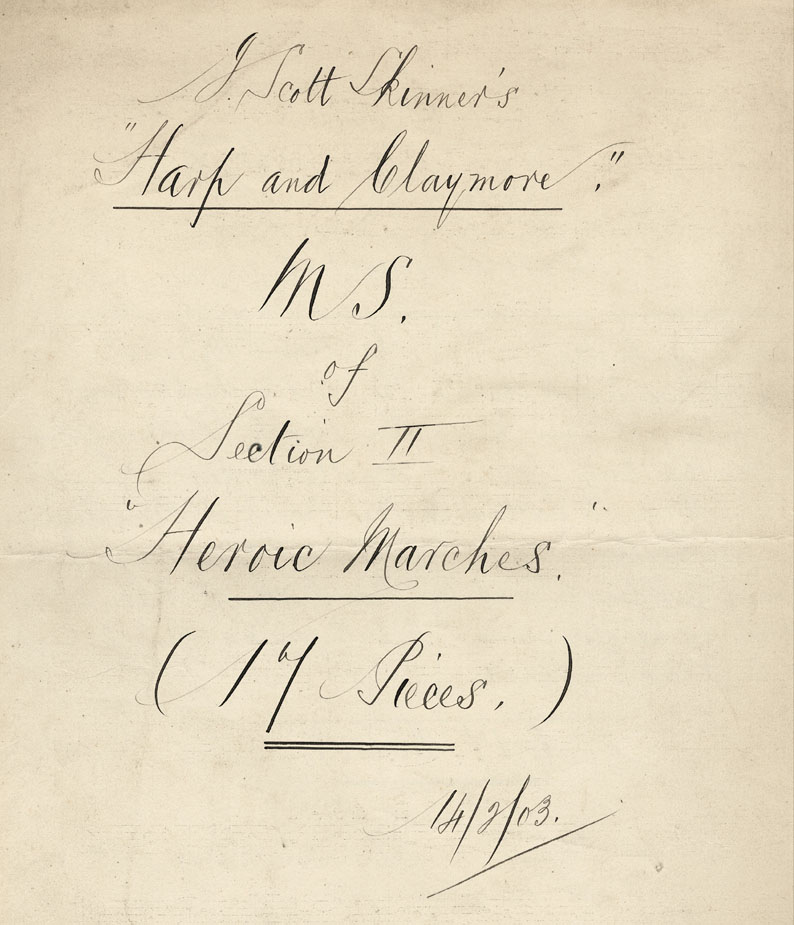 J. Scott Skinner's
"Harp and Claymore."
MS.
of
Section II
"Heroic Marches."
(17 Pieces.)
14/2/03.